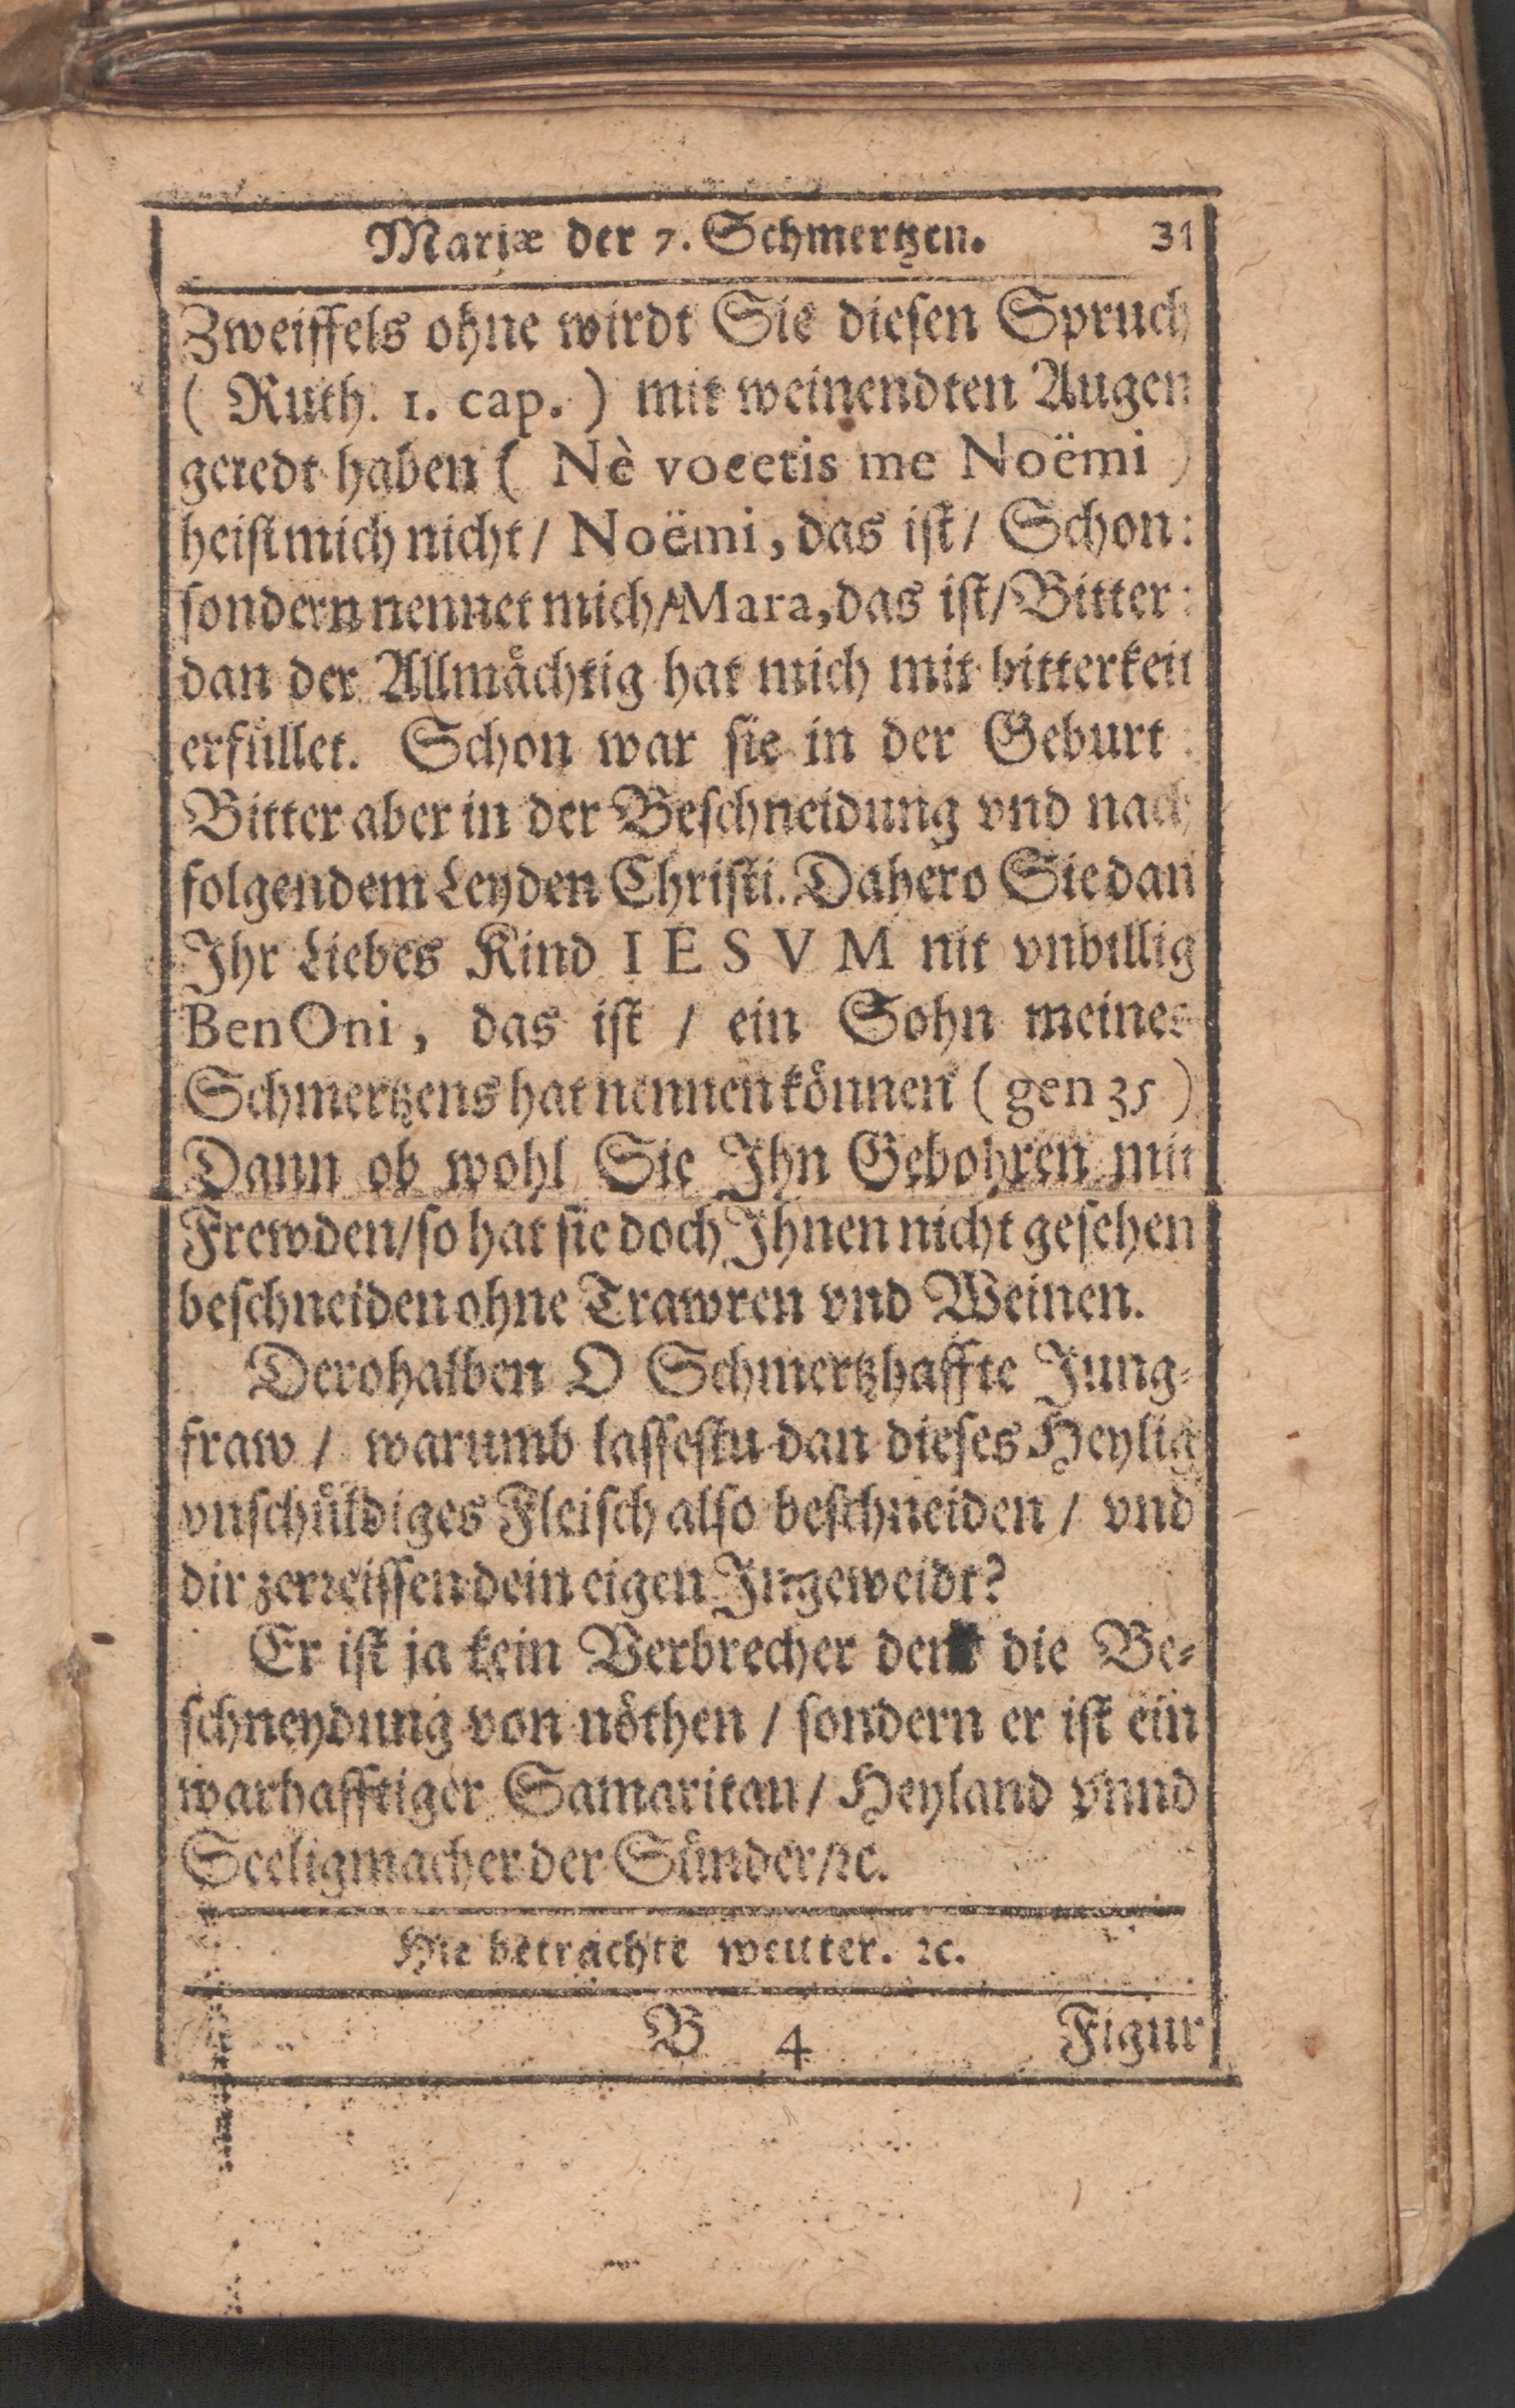 Mariæ der 7. Schmertzen. 31
Zweiffels ohne wirdt Sie diesen Spruch
( Ruth. 1. cap. ) mit weinendten Augen
geredt haben ( Nè voeetis me Noëmi )
heist mich nicht / Noëmi, das ist / Schon:
sondern nennet mich / Mara, das ist / Bitter:
dan der Allmåchtig hat mich mit bitterkeit
erfůllet. Schon war sie in der Geburt:
Bitter aber in der Beschneidung vnd nach
folgendem Leyden Christi. Dahero Sie dan
Ihr Liebes Kind IESVM nit vnbillig
BenOni, das ist / ein Sohn meines
Schmertzens hat nennen kőnnen ( gen 35 )
Dann ob wohl Sie Ihn Gebohren mit
Frewden / so hat sie doch Ihnen nicht gesehen
beschneiden ohne Trawren vnd Weinen.
Derohalben O Schmertzhaffte Jung-
fraw / warumb lassestu dan dieses Heylig
vnschůldiges Fleisch also beschneiden / vnd
dir zerreissen dein eigen Ingeweidt?
Er ist ja kein Verbrecher dem die Be-
schneydung von nőthen / sondern er ist ein
warhafftiger Samaritan / Heyland vnnd
Seeligmacher der Sůnder / ꝛc.
Hie betrachte weitter. ꝛc.
B 4 Figur